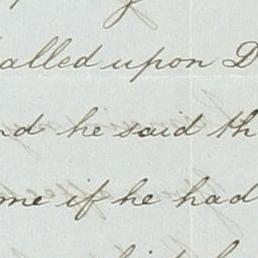 called upon D
nd he said th
me if he had